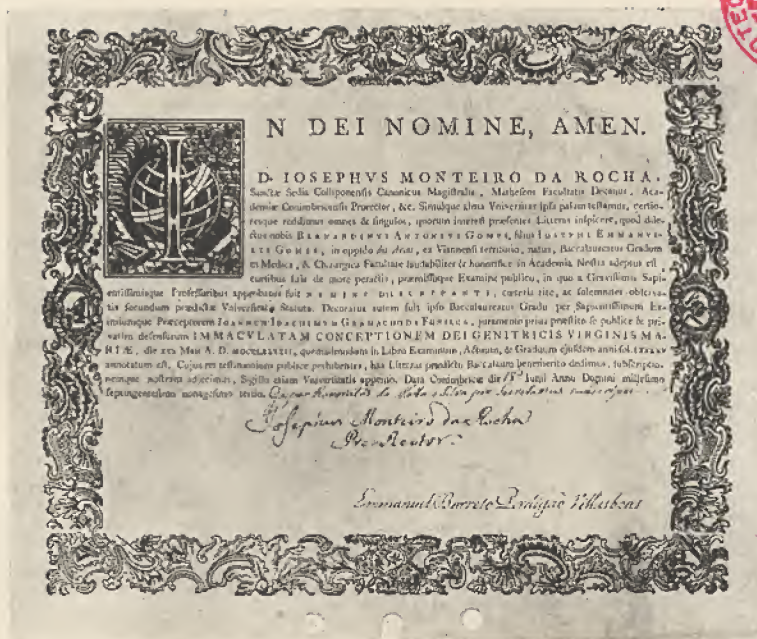 IN DEI NOMINE, AMEN.
D. IOSEPHVS MONTEIRO DA ROCHA,
Sanctæ Sedis Colliponensis Canonicus Magistralis, Matheseos Facultatis Decanus, Aca-
demiæ Conimbricensis Prorector, &c. Simulque alma Universitas ipsa palam testamur, certio-
resque reddimus omnes & singulos, quorum interest præsentes Litteras inspicere, quod dile-
ctus nobis BERNARDINVS ANTONIVS GOMES, filius IOSEPHI EMMANVE-
LIS GOMES, in oppido de Arcos, ex Viannensi territorio, natus, Baccalaureatus Gradum
in Medica, & Chirurgica Facultate laudabiliter & honorifice in Academia Nostra adeptus est,
cursibus suis de more peractis, præmissoque Examine publico, in quo a Gravissimis Sapi-
entissimisque Professoribus approbatus fuit NEMINE DISCREPANTE, cæteris rite, ac solemniter observa-
tis secundum prædictæ Universitatis Statuta. Decoratus autem fuit ipso Baccalaureatus Gradu per Sapientissimum Ex-
imiumque Præceptorem IOANNEM IOACHIMVM, juramento prius præstito se publice & pri-
vatim defensurum IMMACVLATAM CONCEPTIONEM DEI GENITRICIS VIRGINIS MA-
RIÆ, die Maii A. D., quemadmodum in Libro Examinum, Actuum, & Graduum ejusdem anni fol.
annotatum est. Cujus rei testimonium publice perhibentes, has Litteras prædicto Baccalaureo benemerito dedimus, subscriptio-
nemque nostram adjecimus, Sigillo etiam Universitatis appenso. Data Conimbricæ die Iunii Anno Domini millesimo
septingentesimo nonagesimo tertio.
Josephus Monteiro da Rocha
ProRector.
Emmanuel Barreto Perdigão Villasboas